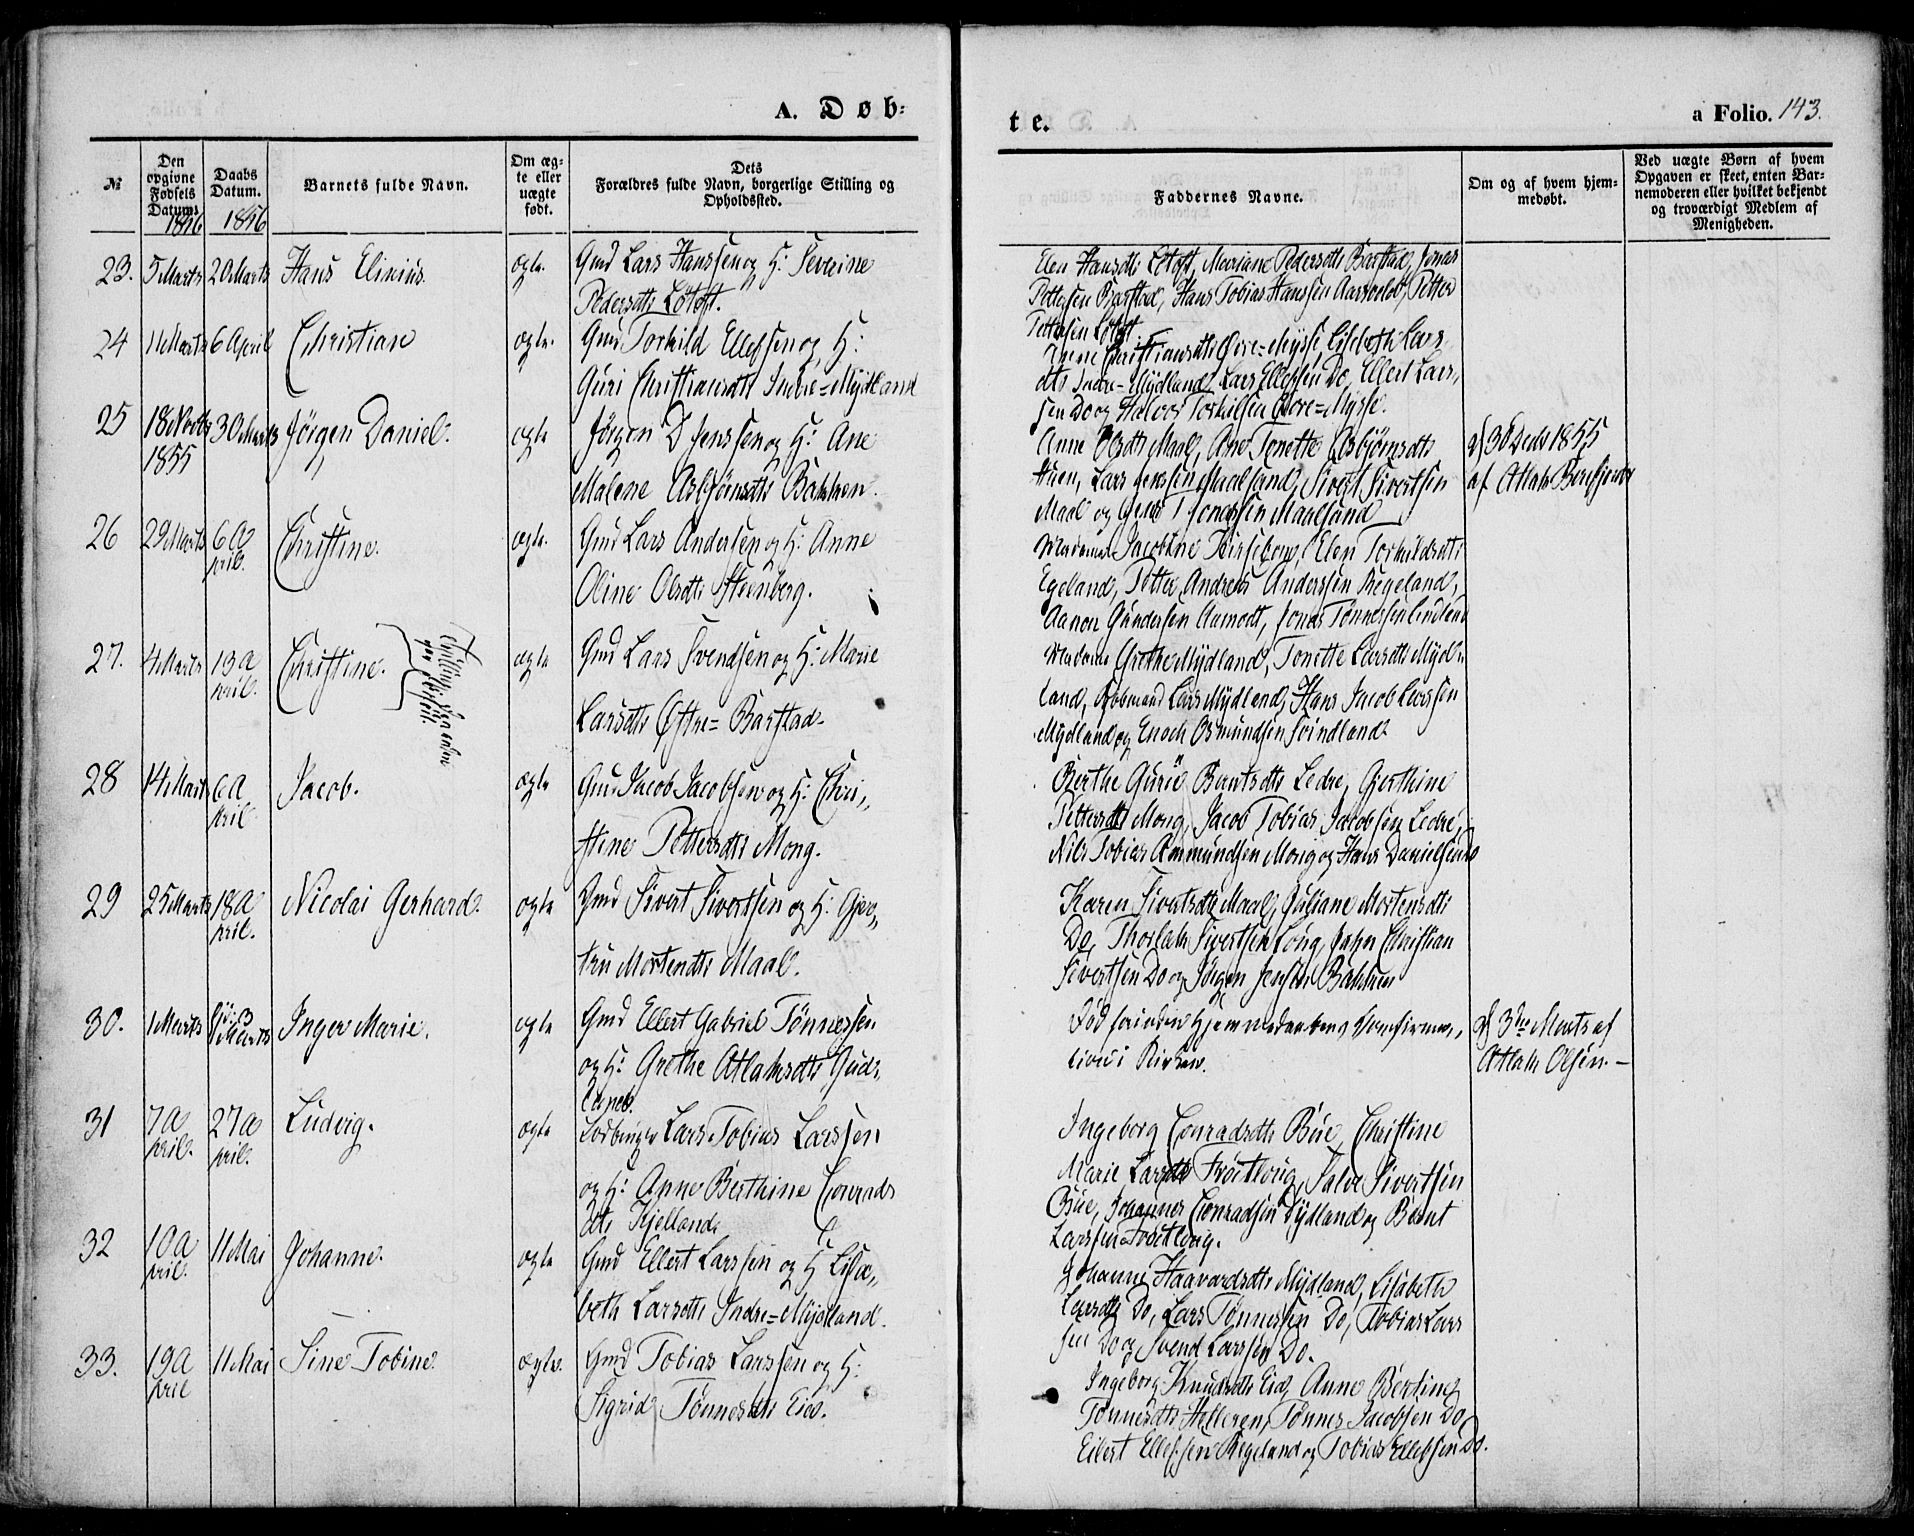 A. Døb-
te.
a Folio. 143.
№
Den opgivne Fødsels Datum. 1856
Daabs Datum. 1856
Barnets fulde Navn.
Om ægte eller uægte født.
Dets Forældres fulde Navn, borgerlige Stilling og Opholdssted.
Faddernes Navne.
Om og af hvem hjemmedøbt.
Ved uægte Børn af hvem Opgaven er skeet, enten Barnemoderen eller hvilket bekjendt og troværdigt Medlem af Menigheden.
23. 5 Marts 20 Marts Hans Elinius. ægte.
Gmd Lars Hanssen og H: Severine
Pedersdtr Løtoft.
Elen Hansdtr Løtoft, Mariane Pedersdtr Barstad, Jonas
Pettersen Barstad, Hans Tobias Hanssen Petter
Pettersen Løtoft
24 11 Marts 6 April Christian ægte.
Gmd Torkild Ellefsen og H:
Guri Christiansdtr Indre=Mydland
Christiansdtr Øvre=Mysse, Lisebeth Lars
dtr Indre=Mydland, Lars Ellefsen Do, Ellert Lars,,
sen Do og Halvor Torkilsen Øvre=Mysse.
25 18 Novbr 1855 30 Marts Jørgen Daniel. ægte
Jørgen D Jenssen og H: Ane
Malene Asbjørnsdtr Bakken.
Anne Olsdtr Maal, Ane Tonette Asbjørnsdtr
Huen, Lars Jenssen Maalsand, Sivert Sivertsen
Maal og Jonassen Maalsand
d 30 Decbr 1855
af Atlak
26 29 Marts 6 April. Christine. ægte.
Gmd Lars Andersen og H: Anne
Oline Olsdtr Steenberg.
Madame Jacobine Elen Torkildsdtr
Egeland, Petter Andreas Anderssen Regeland,
Aanon Gundersen Aamodt, Jonas Tønnessen
27. 4 Marts 13 April. Christine. ægte
Tvilling
Gmd Lars Svendsen og H: Marie
Larsdtr Østre=Barstad.
Madame Grethe Mydland, Tonette Larsdtr Myd=
land, Lars Mydland, Hans Jacob Larssen
Mydland og Enoch Osmundsen Svindland.
28 14 Marts 6 April Jacob. ægte
Gmd Jacob Jacobsen og H: Chri,,
stine Pettersdtr Mong.
Berthe Gurie Berntsdtr Ledre, Gjerthine
Pettersdtr Mong, Jacob Tobias Jacobsen Ledre,
Nils Tobias Ammundsen Mong og Hans Danielsen Do
29 25 Marts 18 April. Nicolai Gerhard. ægte
Gmd Sivert Sivertsen og H: Gjer,,
tru Mortensdtr Maal.
Karen Sivertsdtr Maal, Juliane Mortensdtr
Do, Thorlak Sivertsen Do og John Christian
Sivertsen Do og Jørgen Jenssen Bakken
30. 1 Marts Marts Inger Marie. ægte
Gmd Ellert Gabriel Tønnessen
og H: Grethe Atlaksdtr Guds,,
land.
Død forinden Hjemmedaabens Confirma,,
tion i Kirken.
d 3die Marts af
Atlak Olsen.
31 7 April. 27 April. Ludvig. ægte
Lars Tobias Larssen
og H: Anne Berthine Conrads
dtr Kjelland.
Ingeborg Conradsdtr Bue, Christine
Marie Larsdtr Frøitlog, Salve Sivertsen
Bue, Johannes Conradsen Sydland og Bernt
Larssen Frøitlog.
32 10 April. 11 Mai Johanne. ægte
Gmd Ellert Larssen og H: Lisa,,
beth Larsdtr Indre=Mydland.
Johanne Haavardsdtr Mydland, Lisabeth
Larsdtr Do, Lars Tønnessen Do, Tobias Lars
sen Do og Svend Larssen Do.
33. 19 April 11 Mai Sine Tobine ægte.
Gmd Tobias Larssen og H:
Sigrid Tønnesdtr Eie.
Ingeborg Knudsdtr Eie, Anne Bertine
Tønnesdtr Helleren, Tønnes Jacobsen Do,
Eilert Ellefssen Regeland og Tobias Ellefsen Do.